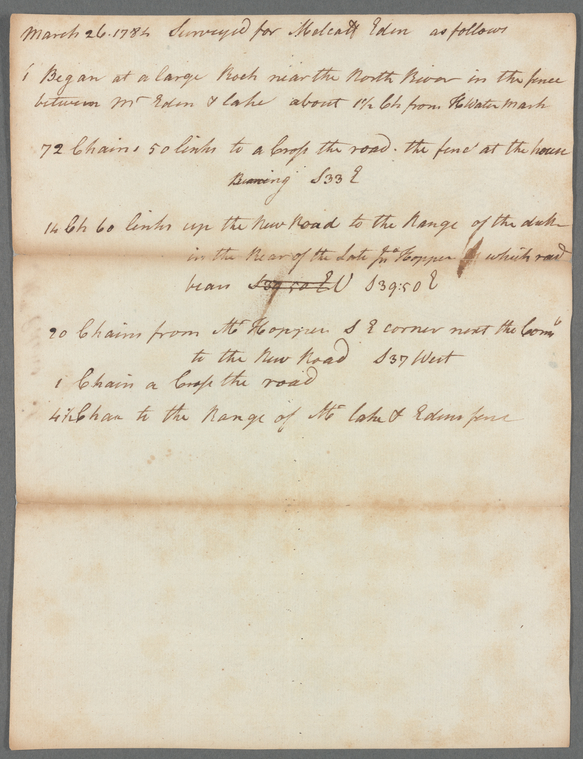 March 26. 1784 Surveyed for Melcatt Eden as follows
1 Began at a large Rock near the North River in the fence
between Mr Eden & lake about 1½ Ch from H Water Mark
72 Chains 50 links to a Cross the road. the fence at the house
Bearing S33 E
14 Ch 60 links up the New Road to the Range of the
in the Rear of the Late Jno Hopper which road
bears S39:50 E S39:50 E
20 Chains from Mr Hopper S E corner next the
to the New Road S37 West
1 Chain a Cross the road
4½ Chan to the Range of Mr lake & Edens fence